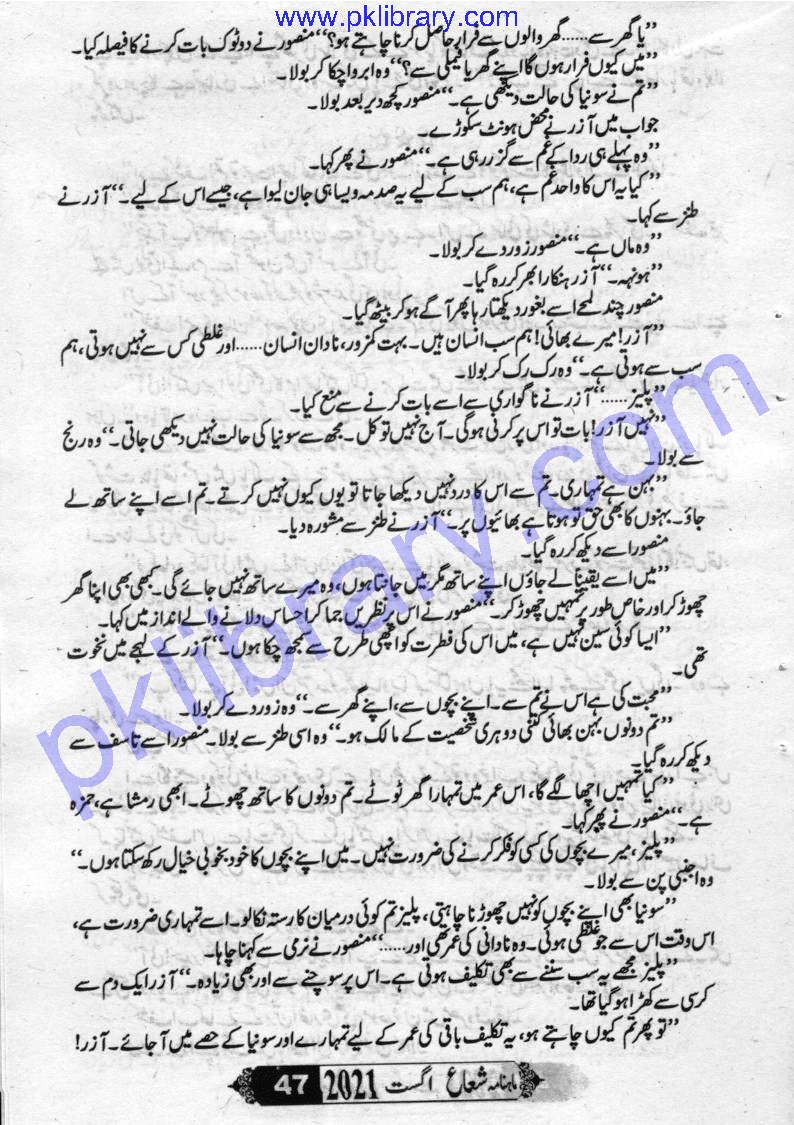 www.pklibrary.com
’’یا گھر سے ...... گھر والوں سے فرار حاصل کرنا چاہتے ہو؟‘‘ منصور نے دو ٹوک بات کرنے کا فیصلہ کیا۔
’’میں کیوں فرار ہوں گا اپنے گھر یا فیملی سے؟‘‘ وہ ابرو اچکا کر بولا۔
’’تم نے سونیا کی حالت دیکھی ہے۔‘‘ منصور کچھ دیر بعد بولا۔
جواب میں آزر نے محض ہونٹ سکوڑے۔
’’وہ پہلے ہی ردا کے غم سے گزر رہی ہے۔‘‘ منصور نے پھر کہا۔
’’کیا یہ اس کا واحد غم ہے، ہم سب کے لیے یہ صدمہ ویسا ہی جان لیوا ہے، جیسے اس کے لیے۔‘‘ آزر نے
طنز سے کہا۔
’’وہ ماں ہے۔‘‘ منصور زور دے کر بولا۔
’’ہونہہ۔‘‘ آزر ہنکارا بھر کر رہ گیا۔
منصور چند لمحے اسے بغور دیکھتا رہا پھر آگے ہو کر بیٹھ گیا۔
’’آزر! میرے بھائی! ہم سب انسان ہیں۔ بہت کمزور، نادان انسان ...... اور غلطی کس سے نہیں ہوتی، ہم
سب سے ہوتی ہے۔‘‘ وہ رک رک کر بولا۔
’’پلیز ......‘‘ آزر نے ناگواری سے اسے بات کرنے سے منع کیا۔
’’نہیں آزر! بات تو اس پر کرنی ہوگی۔ آج نہیں تو کل۔ مجھ سے سونیا کی حالت نہیں دیکھی جاتی۔‘‘ وہ رنج
سے بولا۔
’’بہن ہے تمہاری۔ تم سے اس کا درد نہیں دیکھا جاتا تو یوں کیوں نہیں کرتے۔ تم اسے اپنے ساتھ لے
جاؤ۔ بہنوں کا بھی حق تو ہوتا ہے بھائیوں پر۔‘‘ آزر نے طنز سے مشورہ دیا۔
منصور اسے دیکھ کر رہ گیا۔
’’میں اسے یقیناً لے جاؤں اپنے ساتھ مگر میں جانتا ہوں، وہ میرے ساتھ نہیں جائے گی۔ کبھی بھی اپنا گھر
چھوڑ کر اور خاص طور پر تمہیں چھوڑ کر۔‘‘ منصور نے اس پر نظریں جما کر احساس دلانے والے انداز میں کہا۔
’’ایسا کوئی سین نہیں ہے، میں اس کی فطرت کو اچھی طرح سے سمجھ چکا ہوں۔‘‘ آزر کے لہجے میں نخوت
تھی۔
’’محبت کی ہے اس نے تم سے۔ اپنے بچوں سے، اپنے گھر سے۔‘‘ وہ زور دے کر بولا۔
’’تم دونوں بہن بھائی کتنی دوہری شخصیت کے مالک ہو۔‘‘ وہ اسی طنز سے بولا۔ منصور اسے تاسف سے
دیکھ کر رہ گیا۔
’’کیا تمہیں اچھا لگے گا، اس عمر میں تمہارا گھر ٹوٹے۔ تم دونوں کا ساتھ چھوٹے۔ ابھی رمشا ہے، حمزہ
ہے۔‘‘ منصور نے پھر کہا۔
’’پلیز، میرے بچوں کی کسی کو فکر کرنے کی ضرورت نہیں۔ میں اپنے بچوں کا خود بخوبی خیال رکھ سکتا ہوں۔‘‘
وہ اجنبی پن سے بولا۔
’’سونیا بھی اپنے بچوں کو نہیں چھوڑنا چاہتی، پلیز تم کوئی درمیان کا رستہ نکالو۔ اسے تمہاری ضرورت ہے،
اس وقت اس سے جو غلطی ہوئی۔ وہ نادانی کی عمر تھی اور ......‘‘ منصور نے نرمی سے کہنا چاہا۔
’’پلیز مجھے یہ سب سننے سے بھی تکلیف ہوتی ہے۔ اس پر سوچنے سے اور بھی زیادہ۔‘‘ آزر ایک دم سے
کرسی سے کھڑا ہو گیا تھا۔
’’تو پھر تم کیوں چاہتے ہو، یہ تکلیف باقی کی عمر کے لیے تمہارے اور سونیا کے حصے میں آ جائے۔ آزر!
ماہنامہ شعاع اگست 2021 47
pklibrary.com